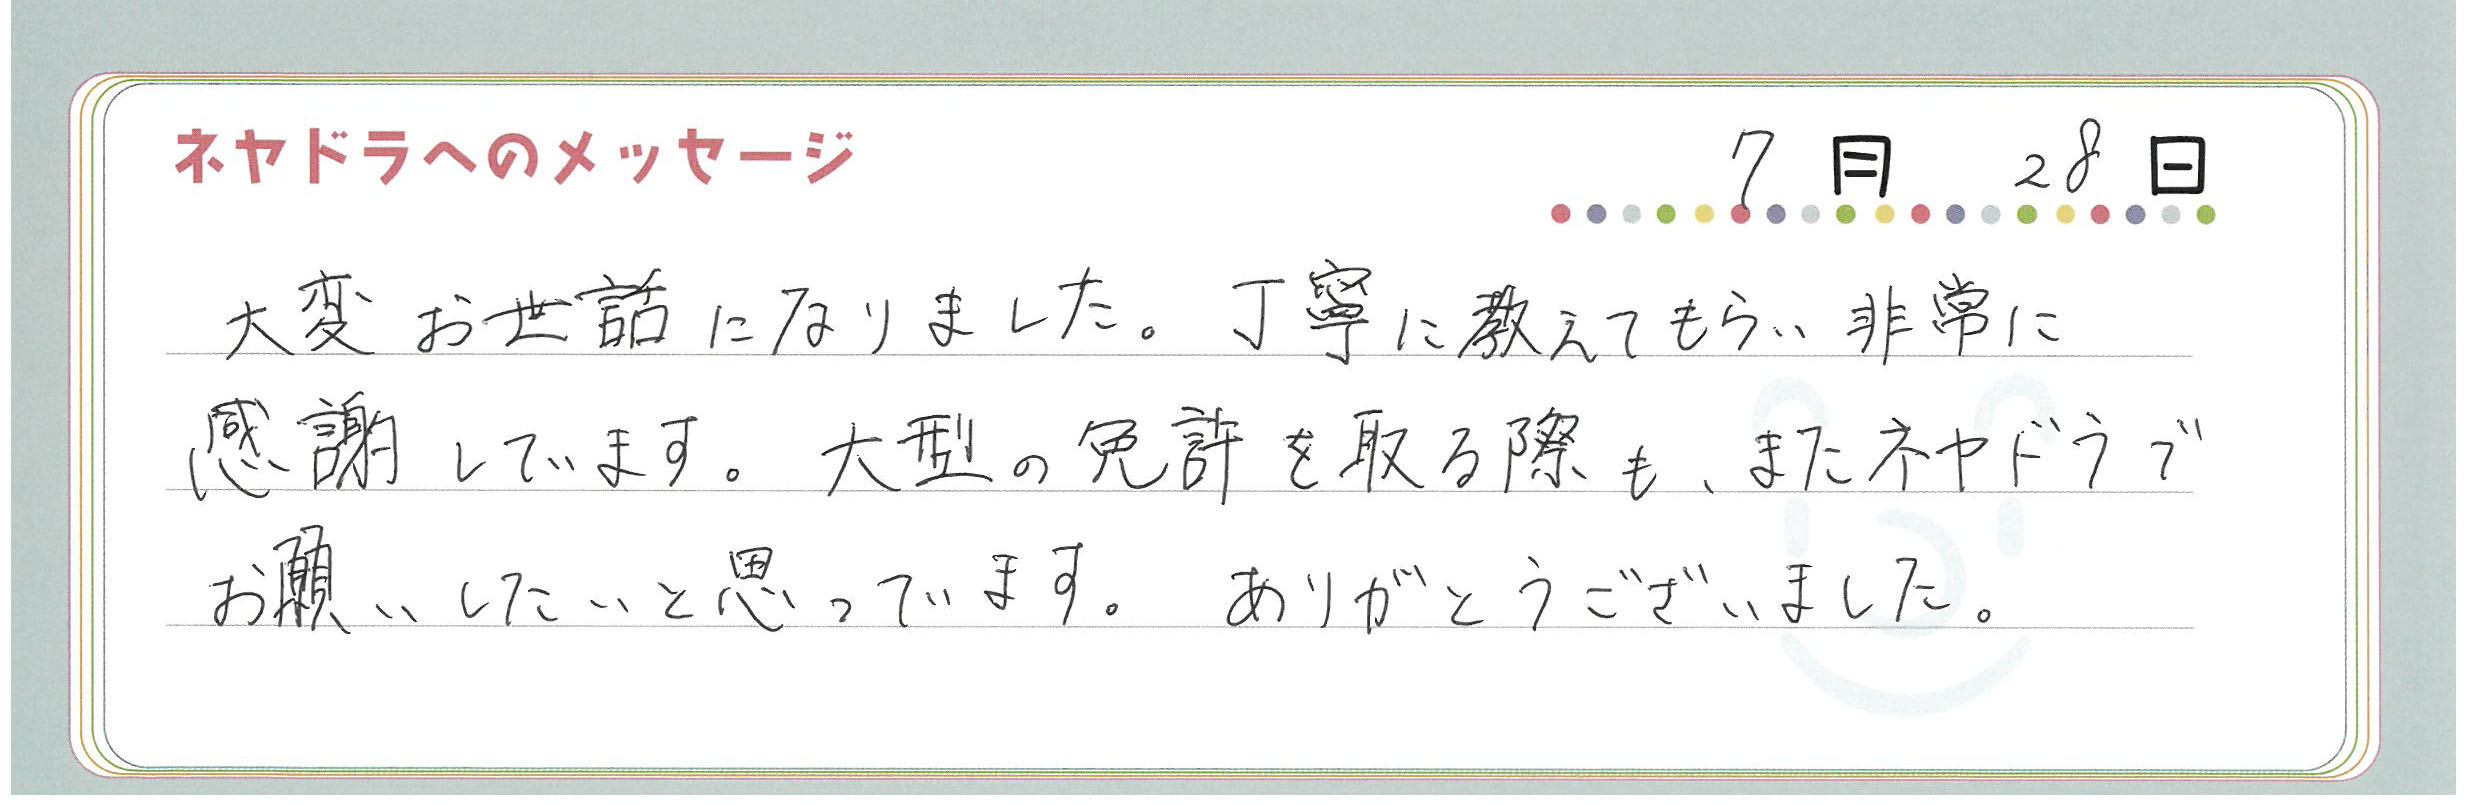 ネヤドラへのメッセージ
7月 28日
大変お世話になりました。丁寧に教えてもらい非常に
感謝しています。大型の免許を取る際も、またネヤドラで
お願いしたいと思っています。ありがとうございました。